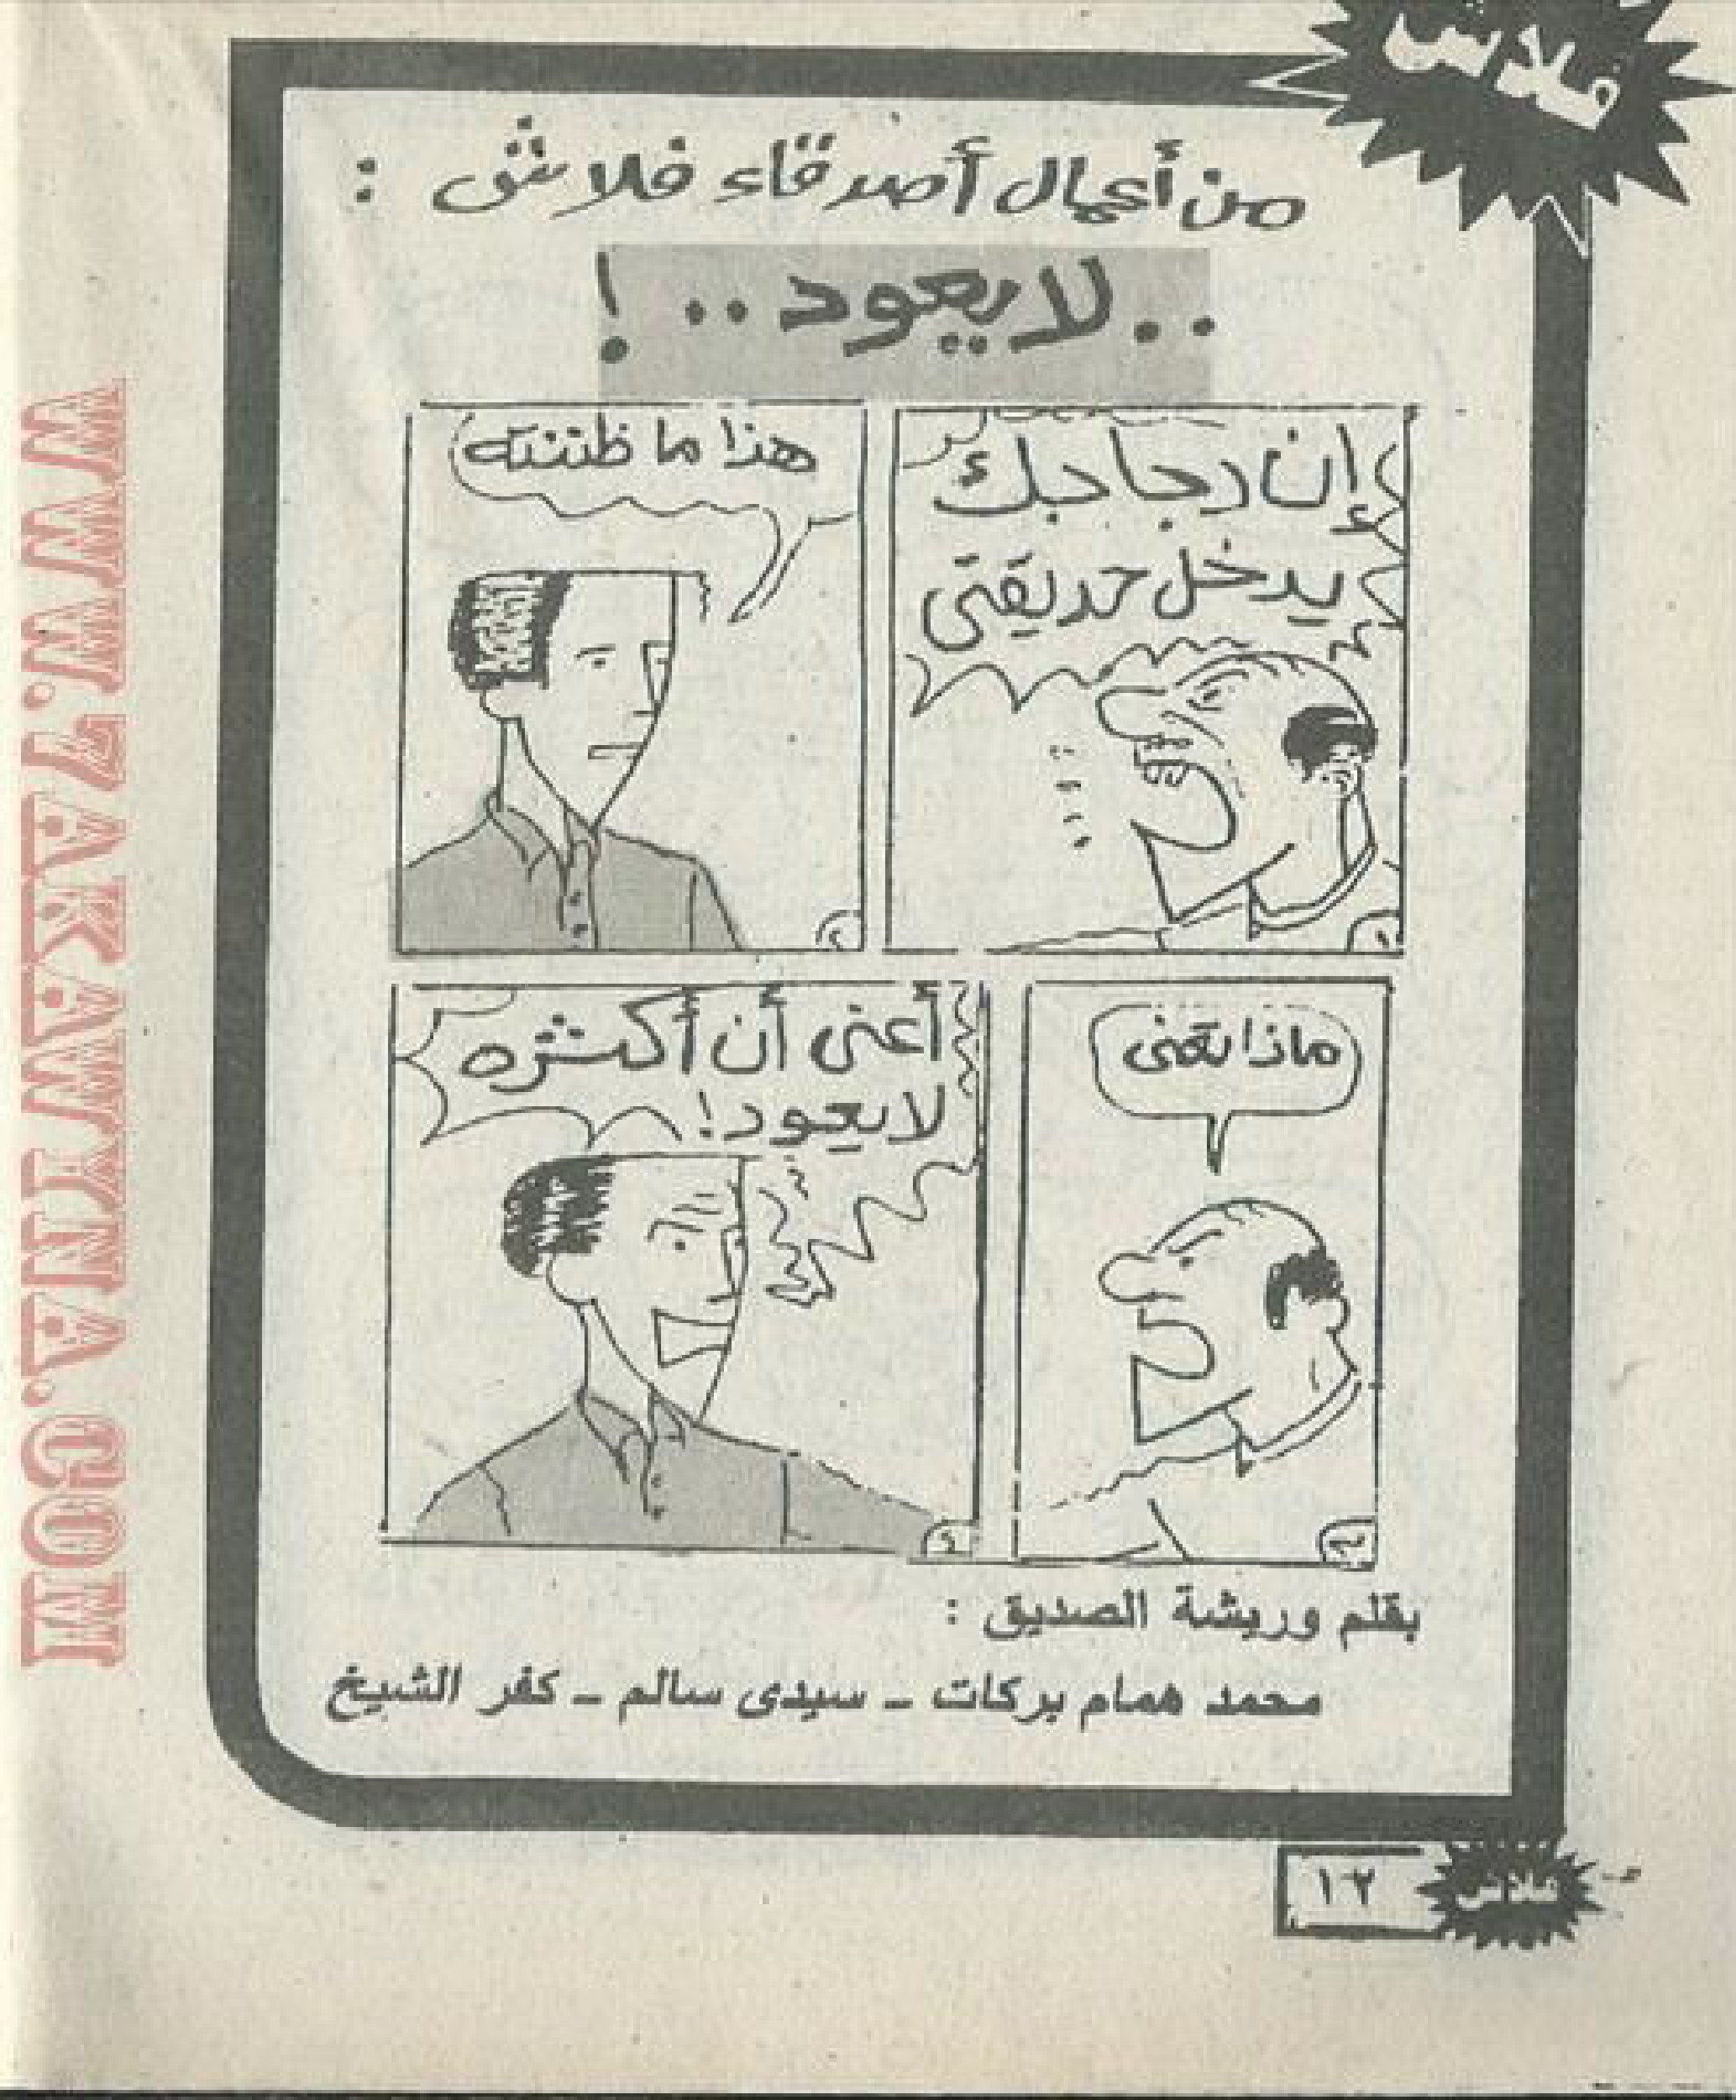 فلاش
من أعمال أصدقاء فلاش :
..لا يعود.. !
إن دجاجك
يدخل حديقتى
١
هذا ما ظننته
٢
ماذا تعنى
٣
أعنى أن أكثره
لا يعود!
٤
بقلم وريشة الصديق :
محمد همام بركات - سيدى سالم - كفر الشيخ
١٢
فلاش
WWW.7AKAWITNA.COM